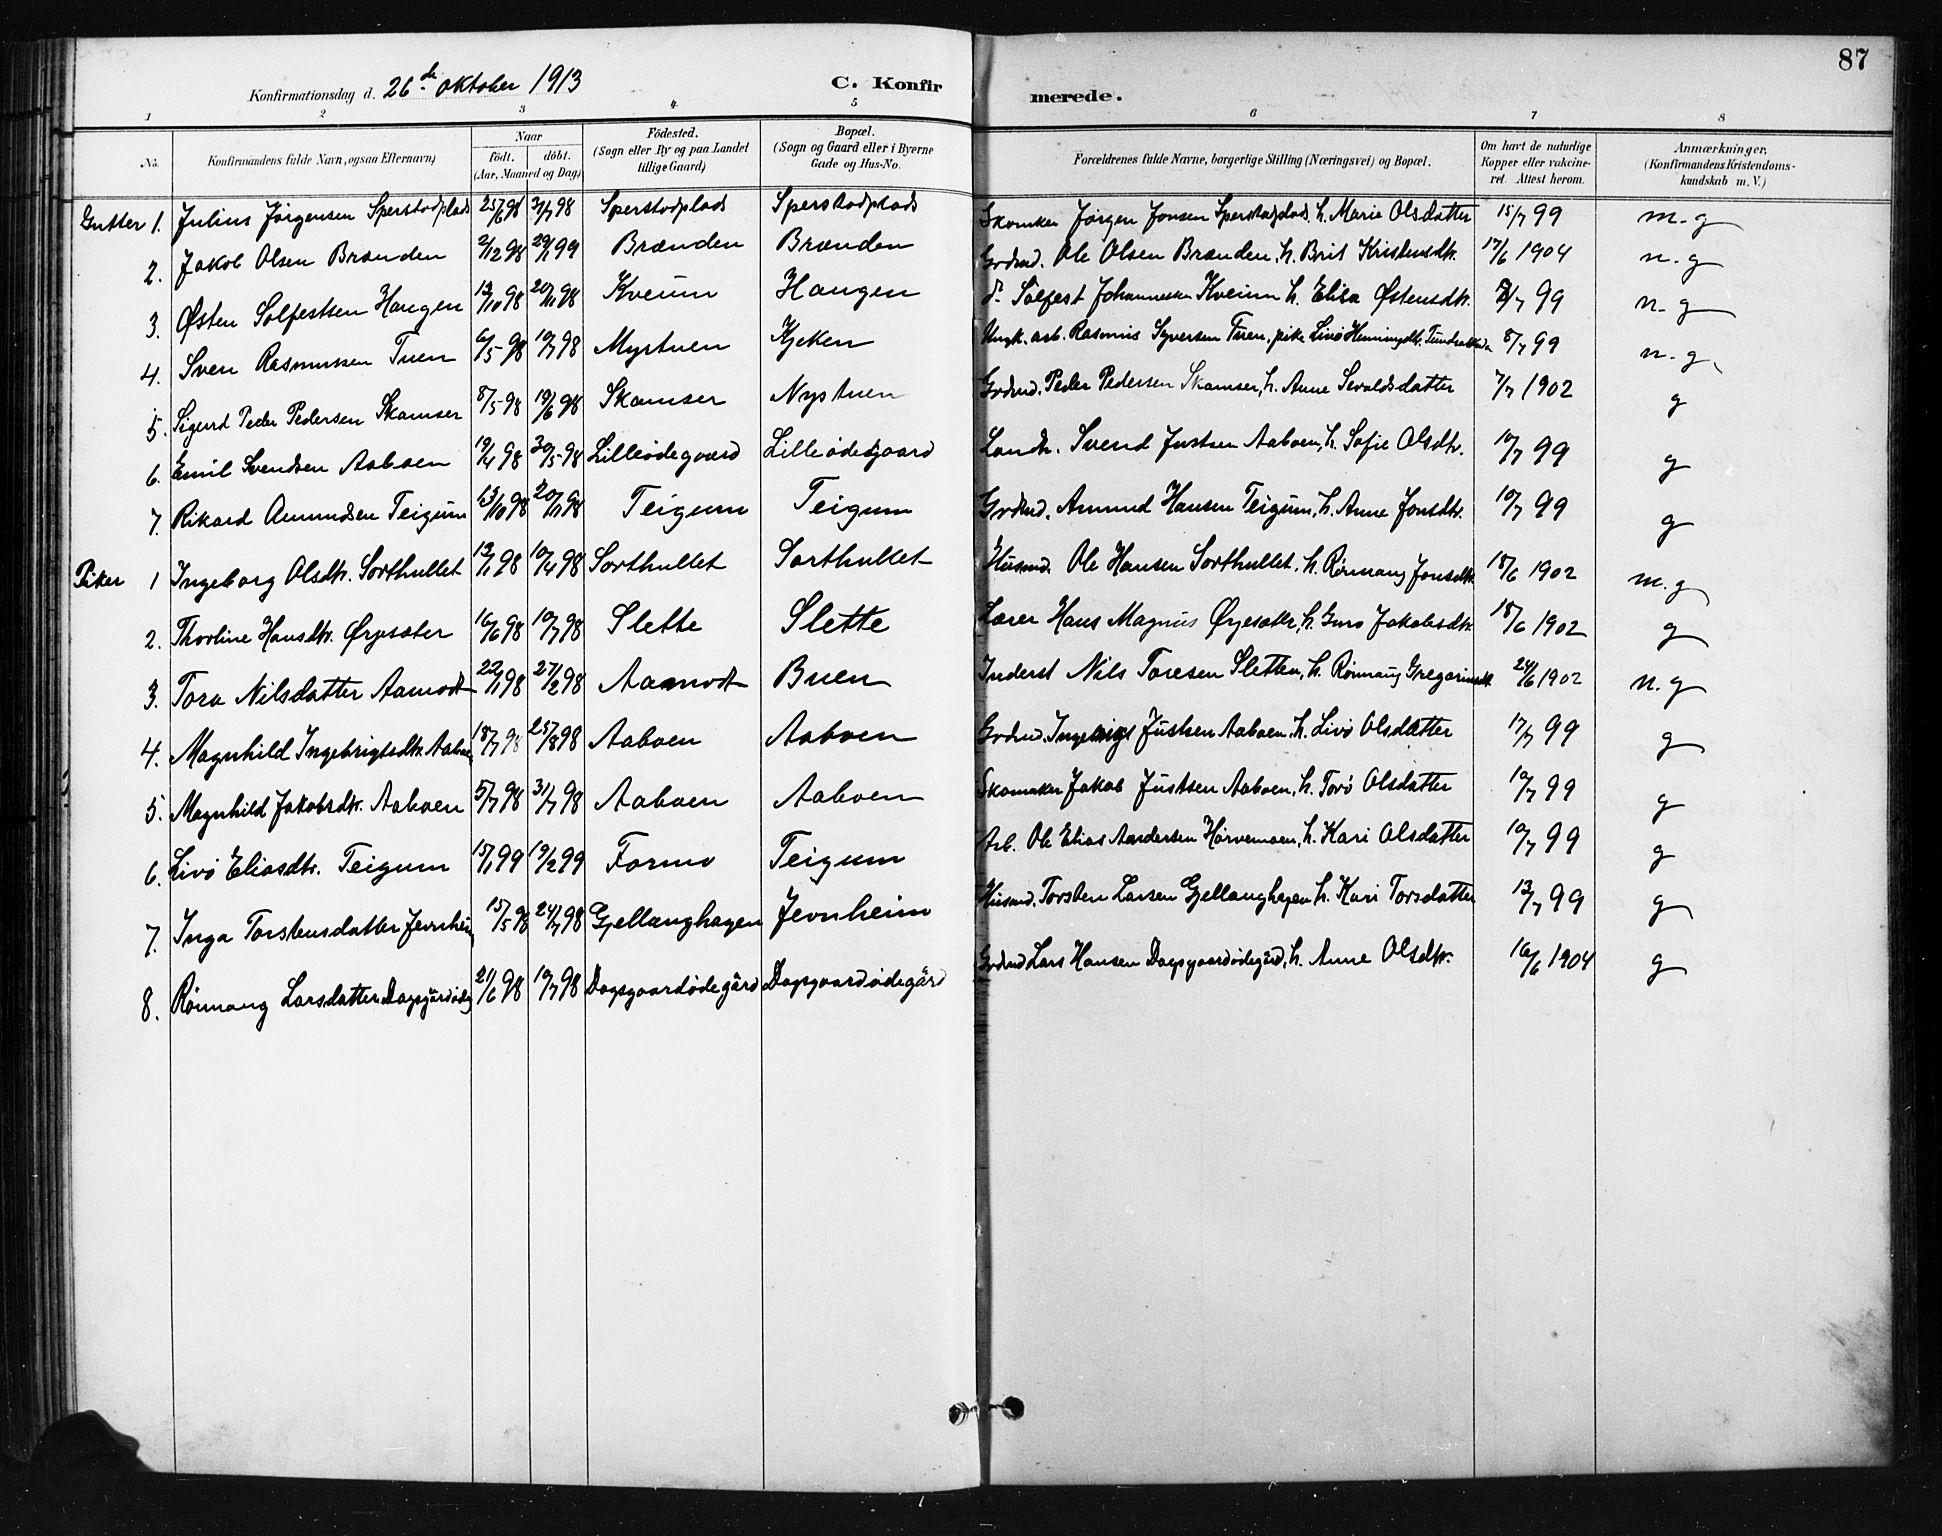 87
Konfirmationsdag d. 26de oktober 1913
C. Konfirmerede.
1 2 3 4 5 6 7 8
No. Konfirmandens fulde Navn, ogsaa Efternavn) Naar födt. döbt. (Aar, Maaned og Dag) Födested. (Sogn eller By og paa Landet tillige Gaard) Bopæl. (Sogn og Gaard eller i Byerne Gade og Hus-No. Forældrenes fulde Navne, borgerlige Stilling (Næringsvei) og Bopæl. Om havt de naturlige Kopper eller vakcineret. Attest herom. Anmærkninger. (Konfirmandens Kristendomskundskab m. V.)
Gutter 1. Julius Jørgensen Sperstadplads 25/6 98 31/7 98 Sperstadplads Sperstadplads Skomker Jørgen Jonsen Sperstadplads h. Marie Olsdatter 15/7 99 m. g
2. Jakob Olsen Brænden 2/12 98 29/1 99 Brænden Brænden Grdmd. Ole Olsen Brænden, h. Brit Kristensdtr. 17/6 1904 n. g
3. Østen Solfestsen Haugen 13/10 98 20/11 98 Kveum Haugen d. Solfest Johannesen Kveum h. Elisa Østensdtr. /7 99 n. g
4. Sven Rasmussen Tuen 6/5 98 10/7 98 Myrtuen Kjeken Ungk. arb. Rasmus Syversen Tuen, pike Livø Henningsdtr. 8/7 99 n. g.
5. Sigurd Peder Pedersen Skamser 8/5 98 19/6 98 Skamser Nystuen Grdmd. Peder Pedersen Skamser, h. Anne Sevaldsdatter 7/7 1902 g
6. Emil Svendsen Aaboen 19/4 98 30/5 98 Lilleødegaard Lilleødegaard Landh. Svend Justsen Aaboen, h. Sofie Olsdtr. 10/7 99 g
7. Rikard Amundsen Teigum 13/10 98 20/11 98 Teigum Teigum Grdmd. Amund Hansen Teigum, h. Anne Jonsdtr. 10/7 99 g
Piker 1 Ingeborg Olsdtr. Sorthullet 13/1 98 10/4 98 Sorthullet Sorthullet Husmd. Ole Hansen Sorthullet, h. Rønnaug Jonsdtr. 18/6 1902 m. g
2. Thorline Hansdtr. Øryesæter 16/6 98 10/7 98 Slette Slette Lærer Hans Magnus Øryesæter, h. Guro Jakobsdtr. 18/6 1902 g
3. Tora Nilsdatter Aamodt 22/1 98 27/2 98 Aamodt Buen Inderst Nils Toresen Sletten, h. Rønnaug Gregoriusdtr. 24/6 1902 n. g
4. Magnhild Ingebrigtsdtr. Aaboen 18/7 98 25/8 98 Aaboen Aaboen Grdmd. Ingebrigt Justsen Aaboen, h. Livø Olsdatter 17/7 99 g
5. Magnhild Jakobsdtr. Aaboen 5/7 98 31/7 98 Aaboen Aaboen Skomaker Jakob Justsen Aaboen, h. Torø Olsdatter 10/7 99 g
6. Livø Eliasdtr. Teigum 15/1 99 19/2 99 Formo Teigum Arb. Ole Elias Andersen Horvemoen, h. Kari Olsdatter 10/7 99 g
7. Inga Torstensdatter Jernheim 15/5 98 24/7 98 Gjellanghagen Jernheim Husmd. Torsten Larsen Gjellanghagen h. Kari Torsdatter 13/7 99 g
8. Rønnaug Larsdatter Dagsgårdødeg 21/6 98 10/7 98 Dagsgaardødegård Dagsgaardødegård Grdmd Lars Hansen Dagsgaardødegård, h. Anne Olsdtr. 16/6 1904 g